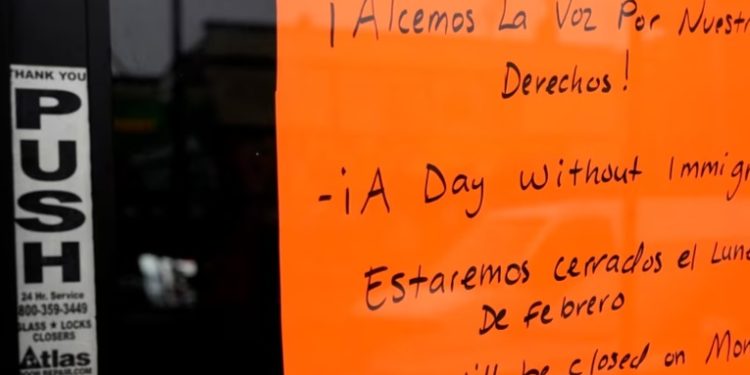 THANK YOU
PUSH
24 Hr. Service
800-359-3449
GLASS ★ LOCKS
CLOSERS
Atlas
¡Alcemos La Voz Por Nuestr
Derechos!
-¡A Day Without Immigr
Estaremos cerrados el Lun
De Febrero
ill be closed on Mon